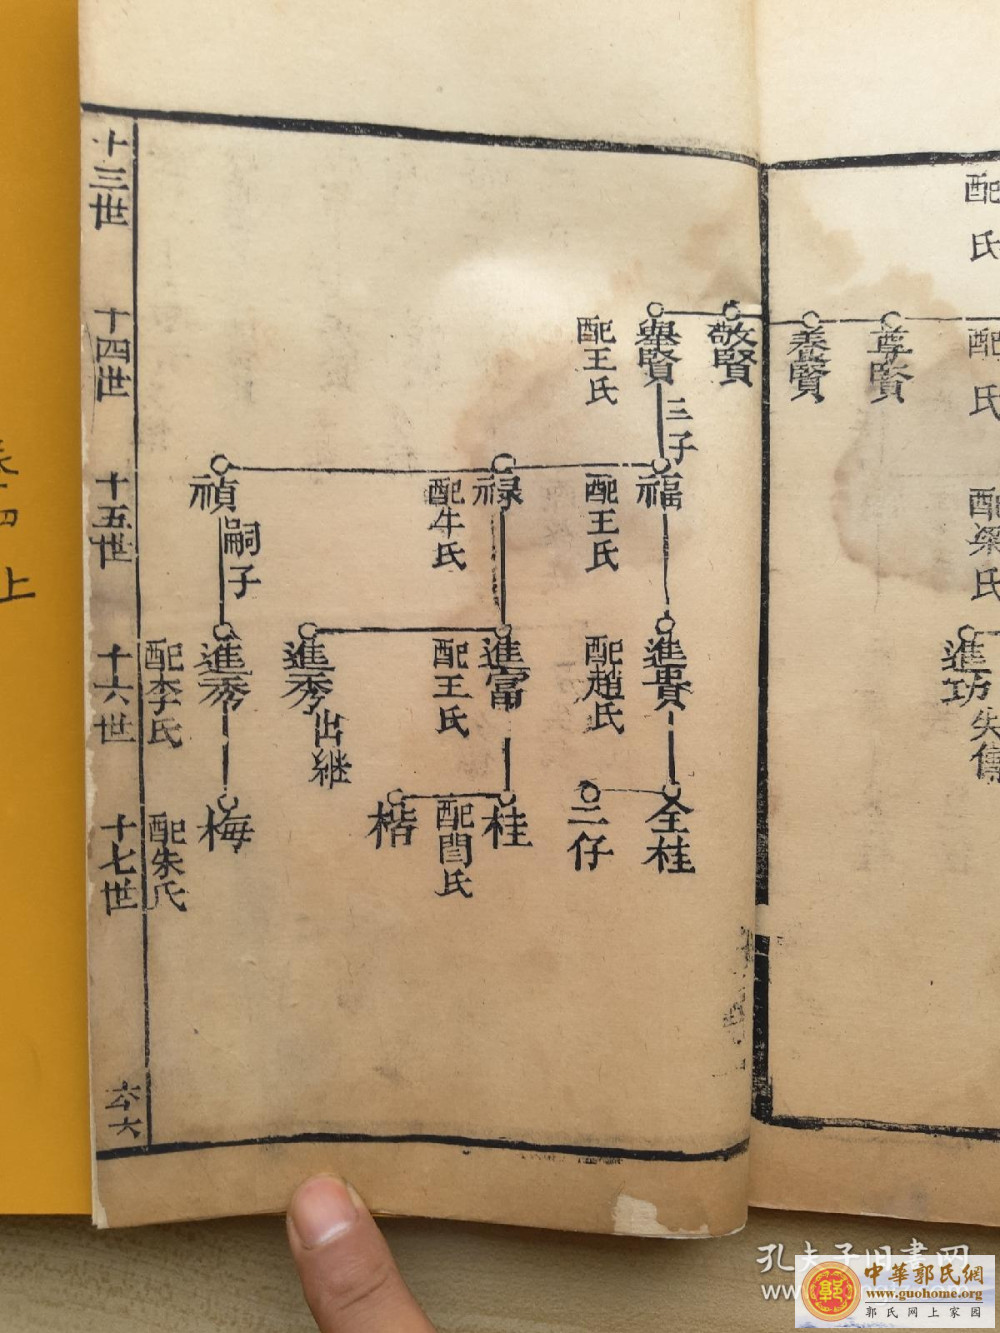 配
氏
配
氏
配梁氏
進功
失傳
尊賢
養賢
敬賢
舉賢
三子
配王氏
福
配王氏
祿
配牛氏
禎
嗣子
進貴
配趙氏
進富
配王氏
進秀
出继
進秀
配李氏
仝桂
二仔
桂
配閆氏
楷
梅
配朱氏
十三世
十四世
十五世
十六世
十七世
六
上
孔夫子旧書网
中華郭氏網
www.guohome.org
郭氏网上家园